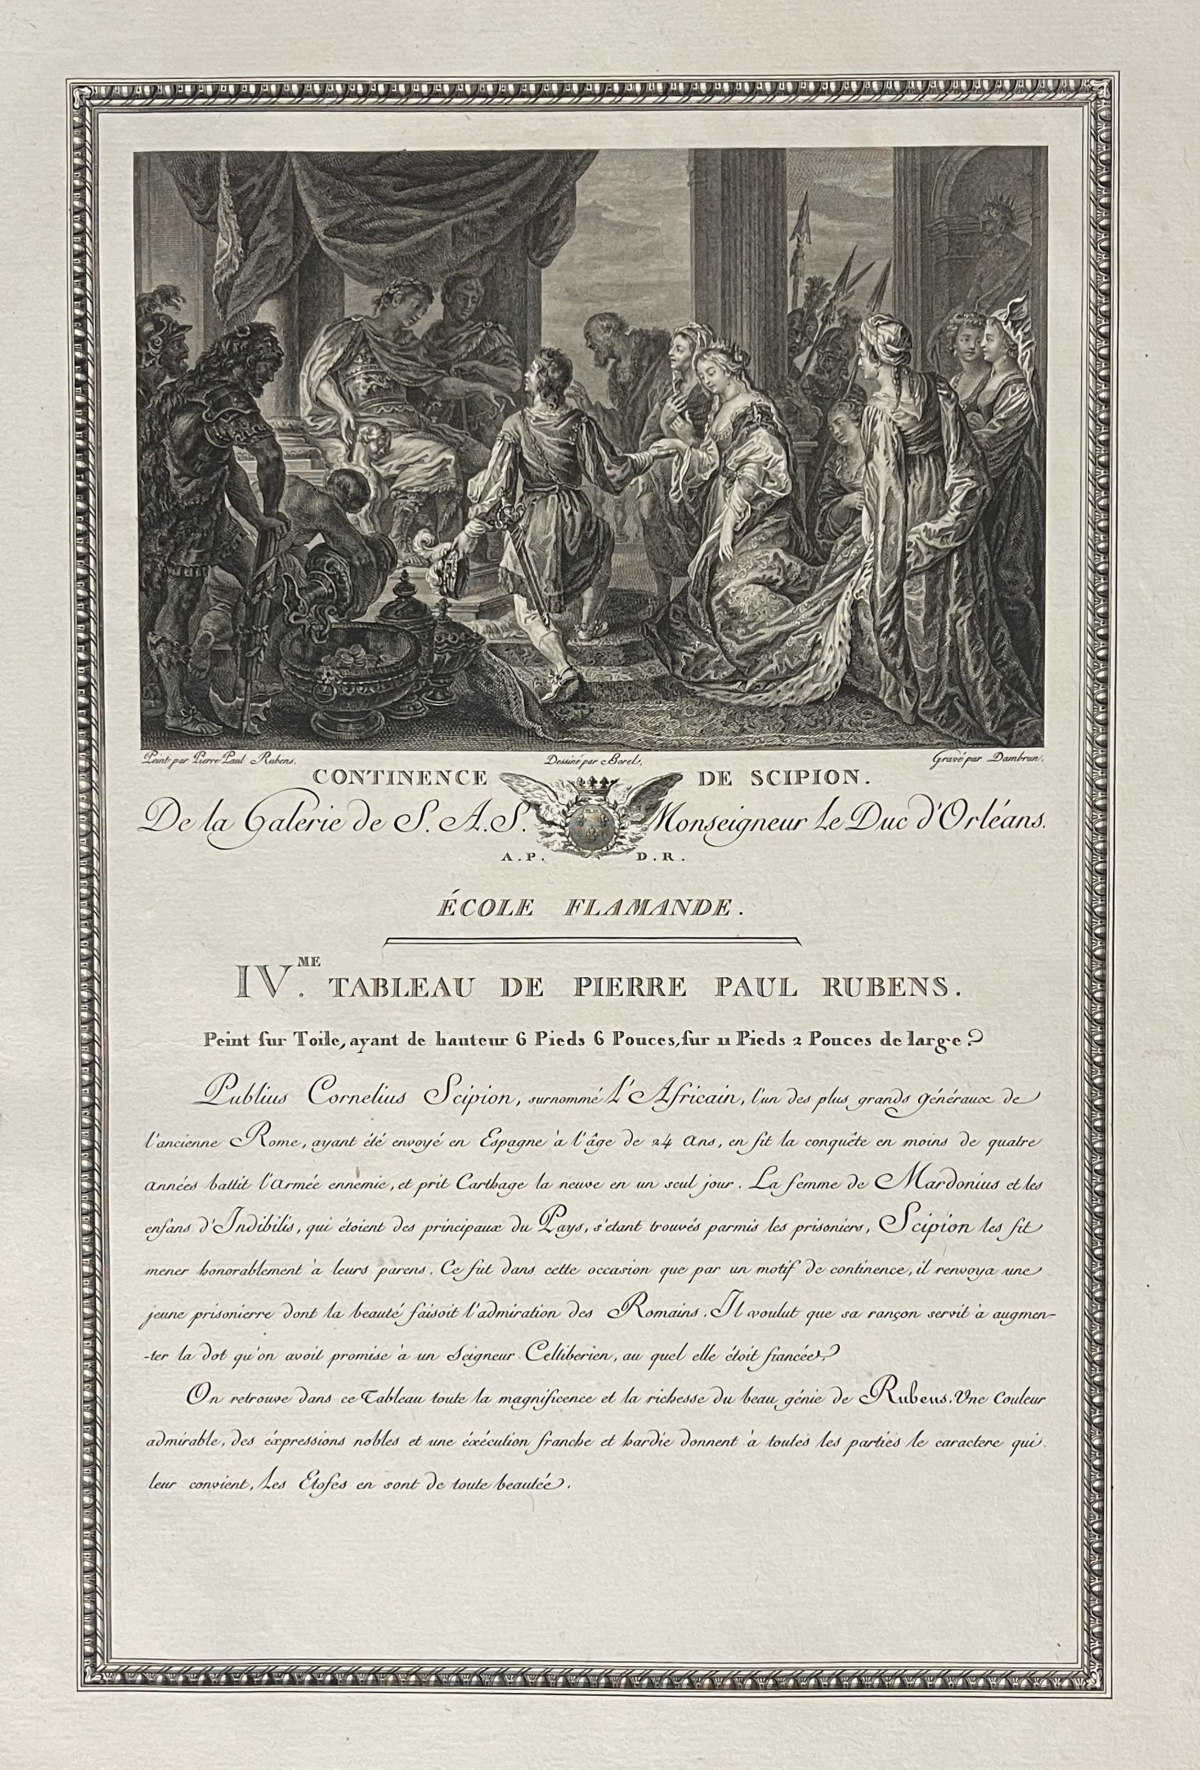 Peint par Pierre Paul Rubens. Dessiné par Borel. Gravé par Dambrun.
CONTINENCE DE SCIPION.
De la Galerie de S. A. S. Monseigneur le Duc d'Orléans.
A. P. D. R.
ÉCOLE FLAMANDE.
IV.ME TABLEAU DE PIERRE PAUL RUBENS.
Peint sur Toile, ayant de hauteur 6 Pieds 6 Pouces, sur 11 Pieds 2 Pouces de large.
Publius Cornelius Scipion, surnommé l'Africain, l'un des plus grands généraux de
l'ancienne Rome, ayant été envoyé en Espagne à l'âge de 24 ans, en fit la conquête en moins de quatre
années battit l'Armée ennemie, et prit Carthage la neuve en un seul jour. La femme de Mardonius et les
enfans d'Indibilis, qui étoient des principaux du Pays, s'étant trouvés parmis les prisoniers, Scipion les fit
mener honorablement à leurs parens. Ce fut dans cette occasion que par un motif de continence, il renvoya une
jeune prisonierre dont la beauté faisoit l'admiration des Romains. Il voulut que sa rançon servit à augmen-
-ter la dot qu'on avoit promise à un Seigneur Celtiberien, au quel elle étoit fiancée.
On retrouve dans ce Tableau toute la magnificence et la richesse du beau génie de Rubens. Une Couleur
admirable, des éxpressions nobles et une éxécution franche et hardie donnent à toutes les parties le caractere qui
leur convient, les Etofes en sont de toute beautée.